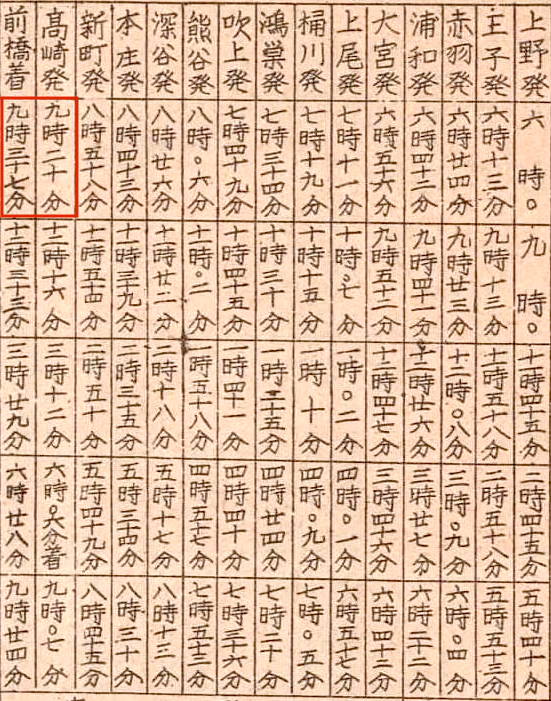 上野発 六時〇 九時〇 十一時四十五分 二時四十五分 五時四十分
王子発 六時十三分 九時十三分 十一時五十八分 二時五十八分 五時五十三分
赤羽発 六時廿四分 九時廿三分 十二時〇八分 三時〇九分 六時〇四分
浦和発 六時四十三分 九時四十一分 十二時廿六分 三時廿七分 六時二十二分
大宮発 六時五十六分 九時五十二分 十二時四十七分 三時四十六分 六時四十二分
上尾発 七時十一分 十時〇七分 一時〇二分 四時〇一分 六時五十七分
桶川発 七時十九分 十時十五分 一時十分 四時〇九分 七時〇五分
鴻巣発 七時三十四分 十時三十分 一時二十五分 四時廿四分 七時二十分
吹上発 七時四十九分 十時四十五分 一時四十一分 四時四十分 七時三十六分
熊谷発 八時〇六分 十一時〇二分 一時五十八分 四時五十七分 七時五十三分
深谷発 八時廿六分 十一時廿二分 二時十八分 五時十七分 八時十三分
本庄発 八時四十三分 十一時三十九分 二時三十五分 五時三十四分 八時三十分
新町発 八時五十八分 十一時五十四分 二時五十分 五時四十九分 八時四十五分
髙崎発 九時二十分 十二時十六分 三時十二分 六時〇六分着 九時〇七分
前橋着 九時三十七分 十二時三十三分 三時廿九分 六時廿八分 九時廿四分